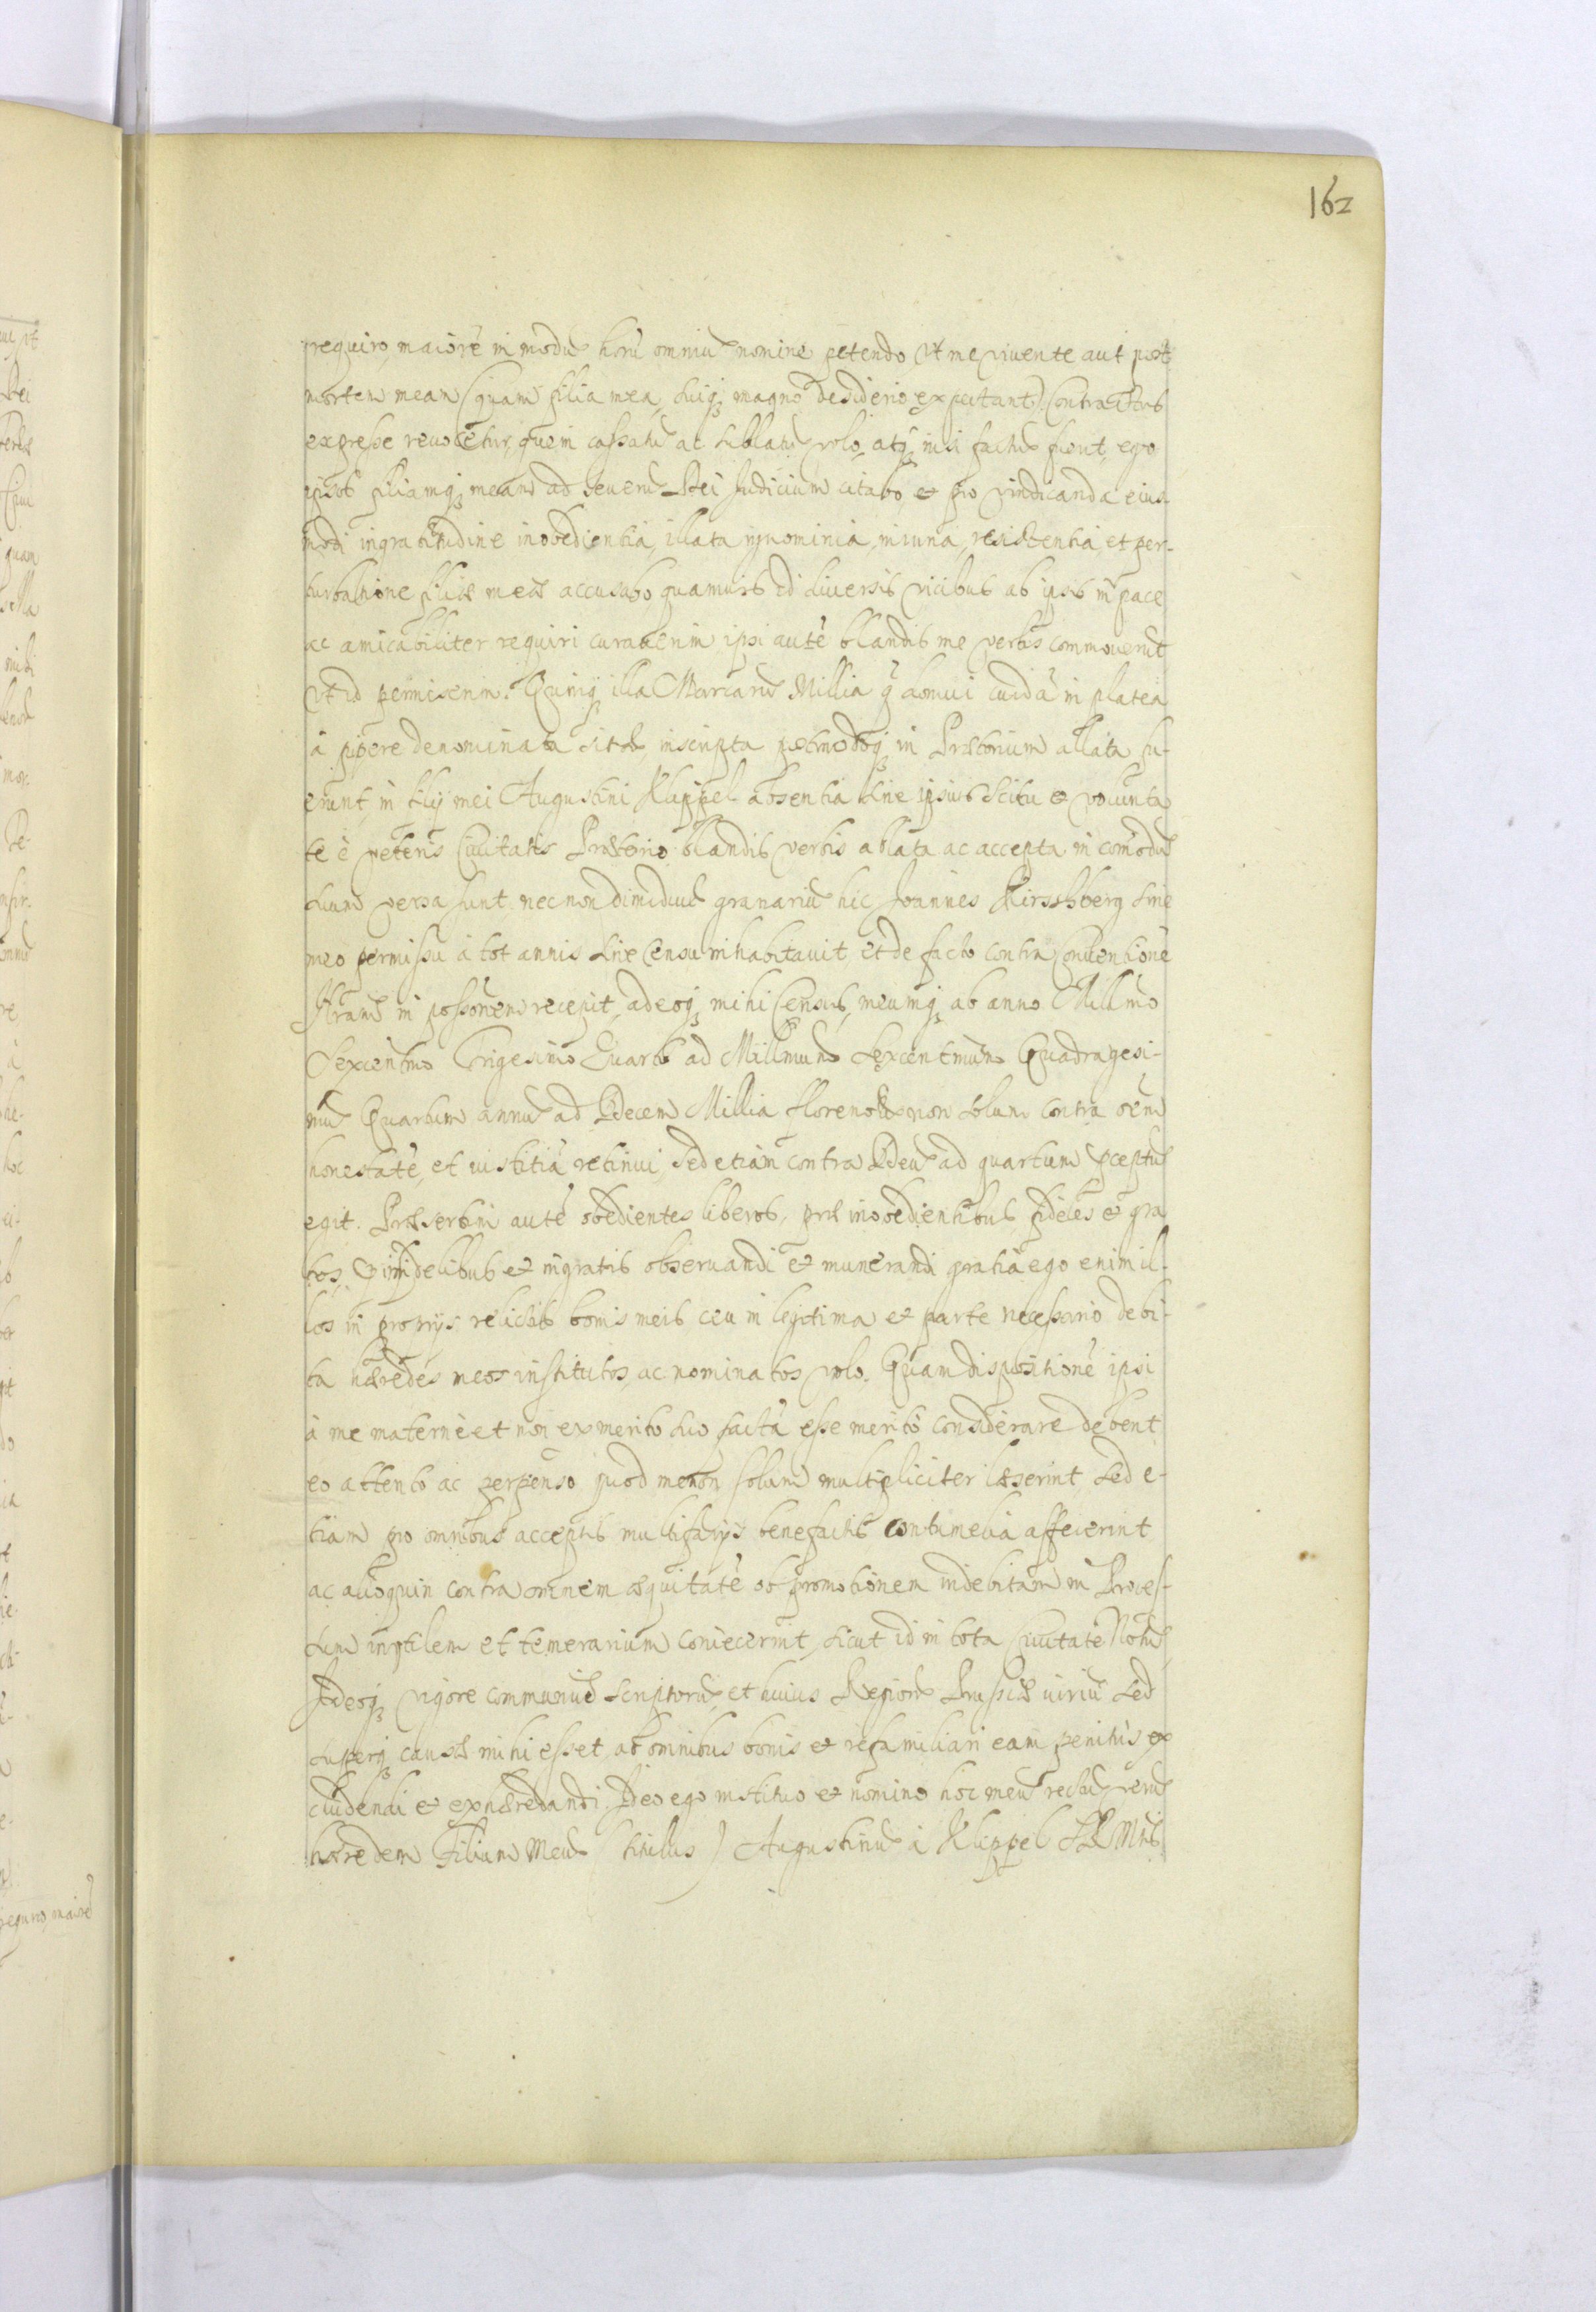 162
requiro maiorē in modū horū omniū nomine petendo Vt me viuente aut post
mortem meam (quam filia mea, suiq3 magno desiderio expectant) Contractus
expresse reuocetur, quem cassatū ac sublatū volo, atq3 nisi factū fuerit, ego
ipsos filiamq3 meam ad seuerū Dei Judicium citabo, et pro vindicanda eius
modi ingratitudine inobedientia, illata ignominia, iniuria, resistentia, et per-
turbatione filiæ meæ accusabo quamuis id diuersis vicibus ab ipsis in pace
ac amicabiliter requiri curauerim, ipsi autē blandis me verbis commouerūt
Vt id permiserim. Cumq3 illa Marcarū Millia q̄ domui cuidā in platea
à pipere denominata sitæ, inscripta postmodoq3 in Prætorium allata fu-
erunt, in filij mei Augustini Kluppel absentia sine ipsius scitu et volunta
te è veteris Ciuitatis Prætorio blandis verbis ablata ac accepta in comodū
suum versa sunt nec non dimidiū granariū hic Joannes Hirschberg sine
meo permissu à tot annis sine Censu inhabitauit, et de facto contra Conuentionē
in possōnem recepit, adeoq3 mihi Census, meumq3 ab anno Millmo
Sexcentmo Trigesimo Quarto ad Millmum Sexcentmum Quadragesi-
mū Quartum annū ad Decem Millia florenor̄ non solum contra oēm
honestatē, et iustitiā retinui, sed etiam contra Deū ad quartum pceptū
egit. Præsertim autē obedientes liberos, præ inobedientibus, fideles et gra
tos, p̄ infidelibus et ingratis obseruandi et munerandi gratia ego enim il-
los in proprijs relictis bonis meis ceu in legitima et parte necessario debi-
ta hæredes meos institutos, ac nominatos volo. Quam dispositionē ipsi
à me maternè et non ex merito suo factā esse meritò considerare debent
eo attento ac perpenso quod me non solum multipliciter læserint sed e-
tiam pro omnibus acceptis multifarijs benefactis contumelia affecerint
ac alioquin contra omnem æquitatē ob promotionem indebitam in Proces-
sum inutilem et temerarium coniecerint, sicut id in tota Ciuitate Notū
Adeoq3 vigore communiū scriptorū, et huius Regiorū Prussiæ iuriū sed
superq3 causæ mihi esset, ab omnibus bonis et re familiari eam penitus ex
cludendi et exhæredandi. Ideo ego instituo et nomino hoc meū rectū verū
hæredem Filium Meū (titulus) Augustinū à Kluppel S R Mtis